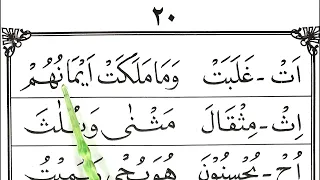 ٢٠
اَتْ - غَلَبَتْ وَمَا مَلَكَتْ اَيْمَانُهُمْ
اِثْ - مِثْقَالَ مَثْنٰى وَثُلٰثَ
اُحْ - يُحْسِنُوْنَ هُوَ يُحْيٖ وَيُمِيْتُ